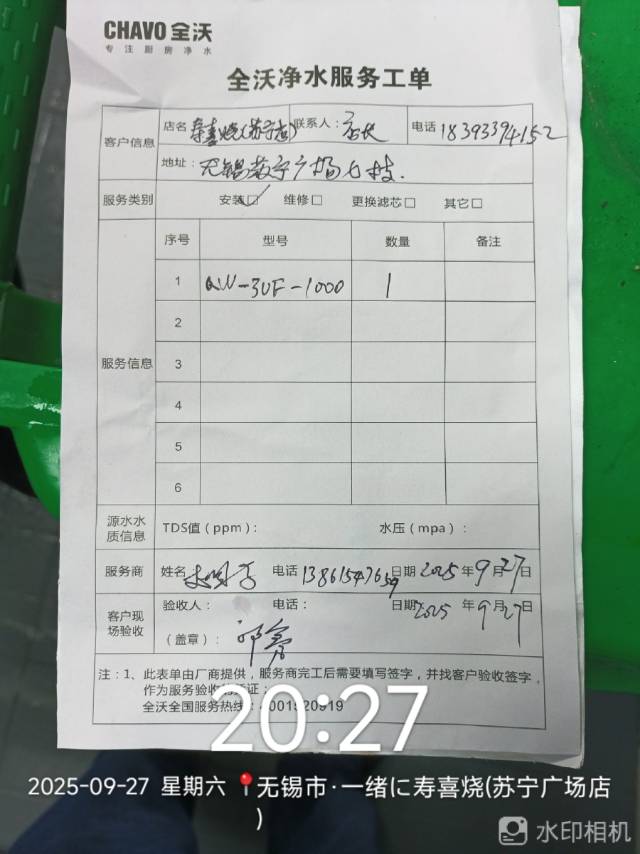 CHAVO 全沃
专注厨房净水
全沃净水服务工单
客户信息 店名 寿喜烧(苏宁店) 联系人: 店长 电话 18393394152
地址: 无锡苏宁广场七楼.
服务类别 安装□✓ 维修□ 更换滤芯□ 其它□
服务信息 序号 型号 数量 备注
1 QW-3UF-1000 1
2
3
4
5
6
源水水质信息 TDS值(ppm): 水压(mpa):
服务商 姓名 电话 13861547659 日期 2025 年 9 月 27 日
客户现场验收 验收人: 电话: 日期 2025 年 9 月 27 日
(盖章):
注:1、此表单由厂商提供,服务商完工后需要填写签字,并找客户验收签字,
作为服务验收的凭证;
全沃全国服务热线:4001520919
20:27
2025-09-27 星期六 📍无锡市·一绪に寿喜烧(苏宁广场店
)
水印相机